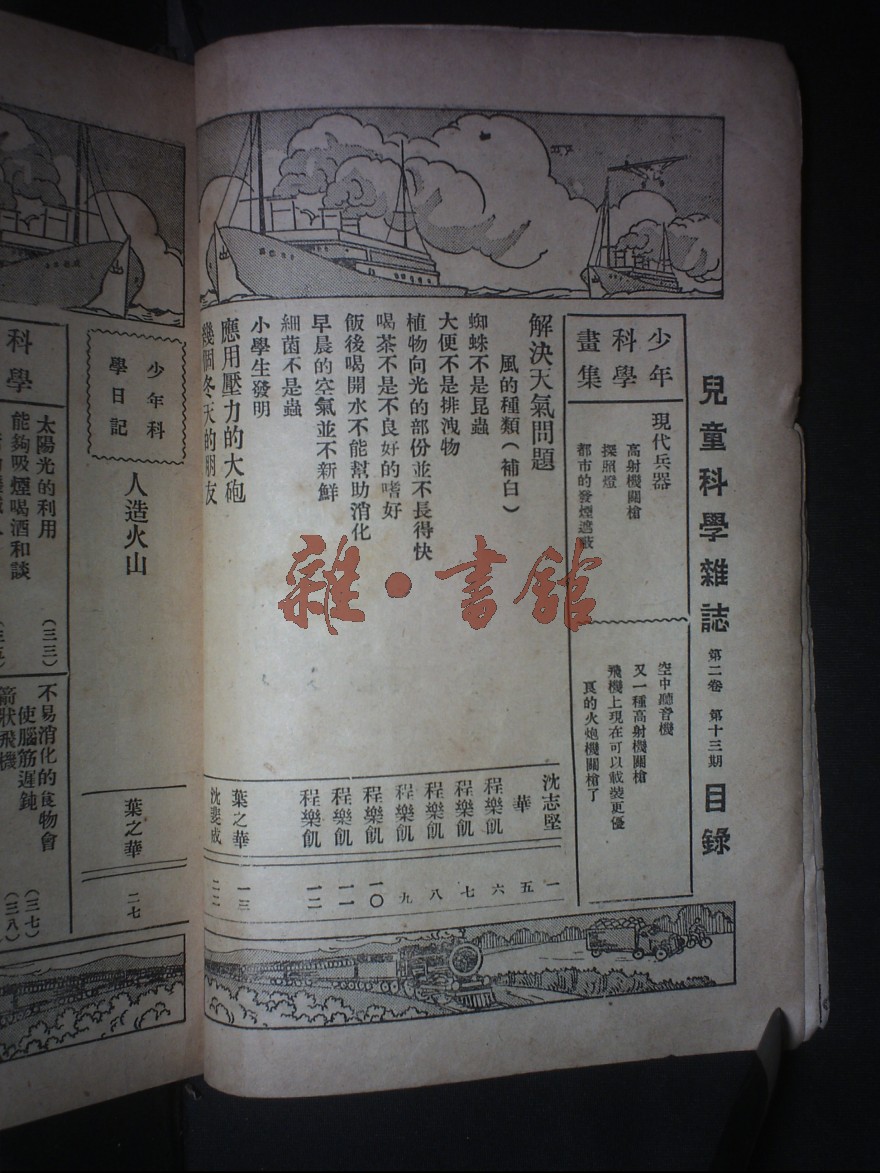 兒童科學雜誌 第二卷 第十三期 目錄
少年
科學
畫集
現代兵器
高射機關槍
探照燈
都市的發煙遮蔽
空中聽音機
又一種高射機關槍
飛機上現在可以載裝更優
良的火炮機關槍了
解決天氣問題 沈志堅 一
風的種類(補白) 華 五
蜘蛛不是昆蟲 程樂飢 六
大便不是排洩物 程樂飢 七
植物向光的部份並不長得快 程樂飢 八
喝茶不是不良好的嗜好 程樂飢 九
飯後喝開水不能幫助消化 程樂飢 一〇
早晨的空氣並不新鮮 程樂飢 一一
細菌不是蟲 程樂飢 一二
小學生發明
應用壓力的大砲 葉之華 一三
幾個冬天的朋友 沈斐成 二二
少年科
學日記
人造火山 葉之華 二七
科學
太陽光的利用 (三三)
能夠吸煙喝酒和談
不易消化的食物會
使腦筋遲鈍 (三七)
箭狀飛機 (三八)
雜·書館